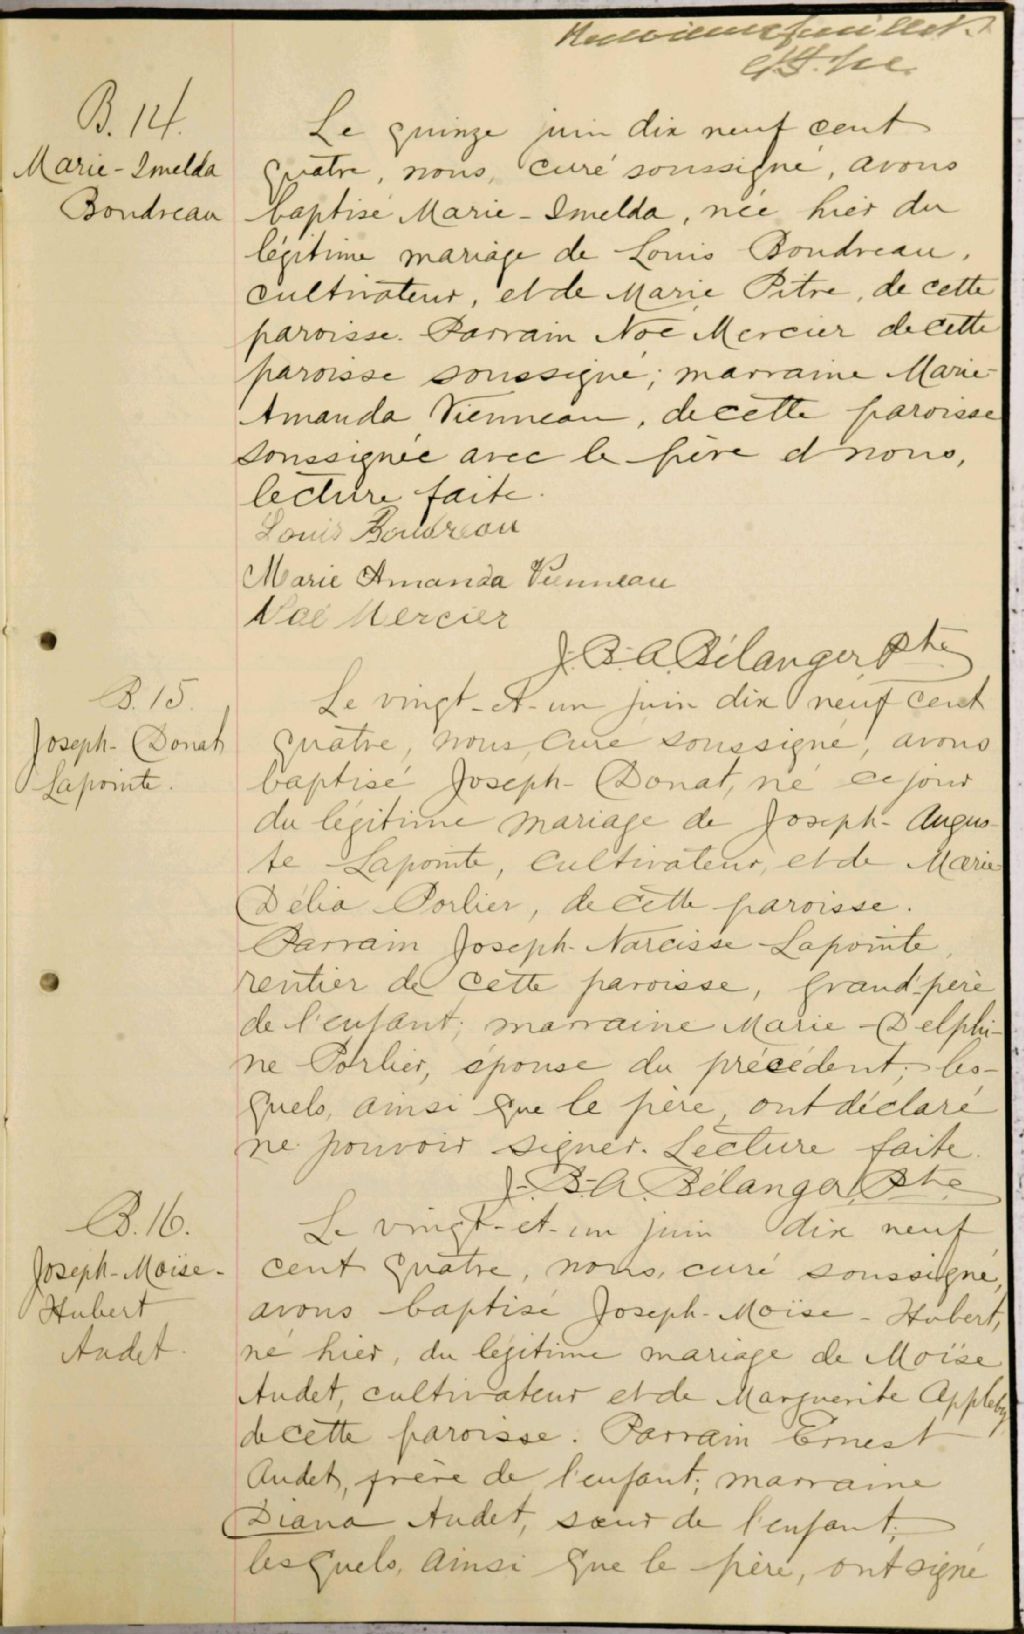 feuillet.
B. 14.
Marie-Imelda
Boudreau
Le quinze juin dix neuf cent
quatre, nous, curé soussigné, avons
baptisé Marie-Imelda, née hier du
légitime mariage de Louis Boudreau,
cultivateur, et de Marie Pitre, de cette
paroisse. Parrain Noé Mercier de cette
paroisse soussigné; marraine Marie-
Amanda Vienneau, de cette paroisse
soussignée avec le père et nous,
lecture faite.
Louis Boudreau
Marie Amanda Vienneau
Noé Mercier
J.-B.-A. Bélanger, Ptre
B. 15.
Joseph-Donat
Lapointe.
Le vingt-et-un juin dix neuf cent
quatre, nous, curé soussigné, avons
baptisé Joseph-Donat, né ce jour
du légitime mariage de Joseph-Augus-
te Lapointe, cultivateur, et de Marie
Délia Porlier, de cette paroisse.
Parrain Joseph-Narcisse Lapointe,
rentier de cette paroisse, grand-père
de l'enfant; marraine Marie-Delphi-
ne Porlier, épouse du précédent; les-
quels, ainsi que le père, ont déclaré
ne pouvoir signer. Lecture faite.
J.-B.-A. Bélanger, Ptre
B. 16.
Joseph-Moïse-
Hubert
Audet.
Le vingt-et-un juin dix neuf
cent quatre, nous, curé soussigné,
avons baptisé Joseph-Moïse-Hubert,
né hier, du légitime mariage de Moïse
Audet, cultivateur et de Marguerite Appleby
de cette paroisse. Parrain Ernest
Audet, frère de l'enfant; marraine
Diana Audet, sœur de l'enfant;
lesquels, ainsi que le père, ont signé